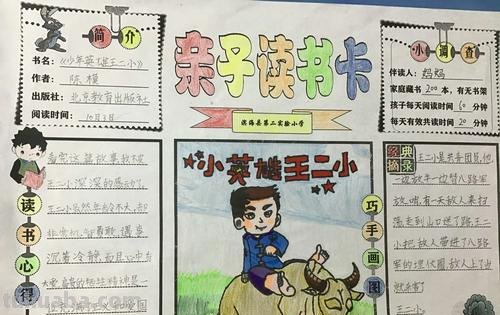 简介
书名：《少年英雄王二小》
作者：陈模
出版社：北京教育出版社
阅读时间：10月3日
亲子读书卡
滨海县第二实验小学
小调查
伴读人：妈妈
家庭藏书 200 本，有无书架
孩子每天阅读时间 60 分钟
每天有效共读时间 20 分钟
读书心得
看完这篇故事我不禁
王二小深深的感动了。
王二小虽然年龄不大，却
非常机智勇敢，遇事
沉着冷静，而且心中有
小英雄王二小
巧手画图
经典摘录
王二小是共青团员，他
一边放牛一边替八路军
放哨，有一天敌人来扫
荡走到山口迷了路，王二
小把敌人带进了八路
军的埋伏圈，敌人上了当